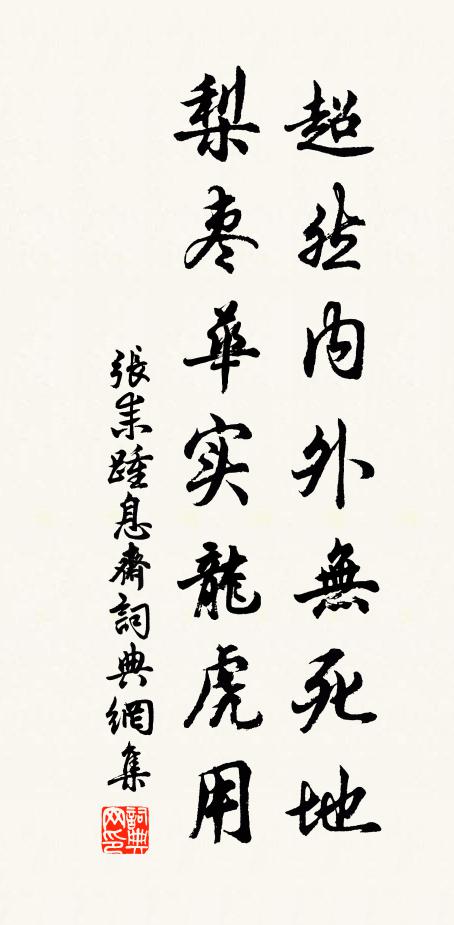 超然内外無死地
梨枣華实龍虎用
張耒踵息齋詞典網集
詞典网印